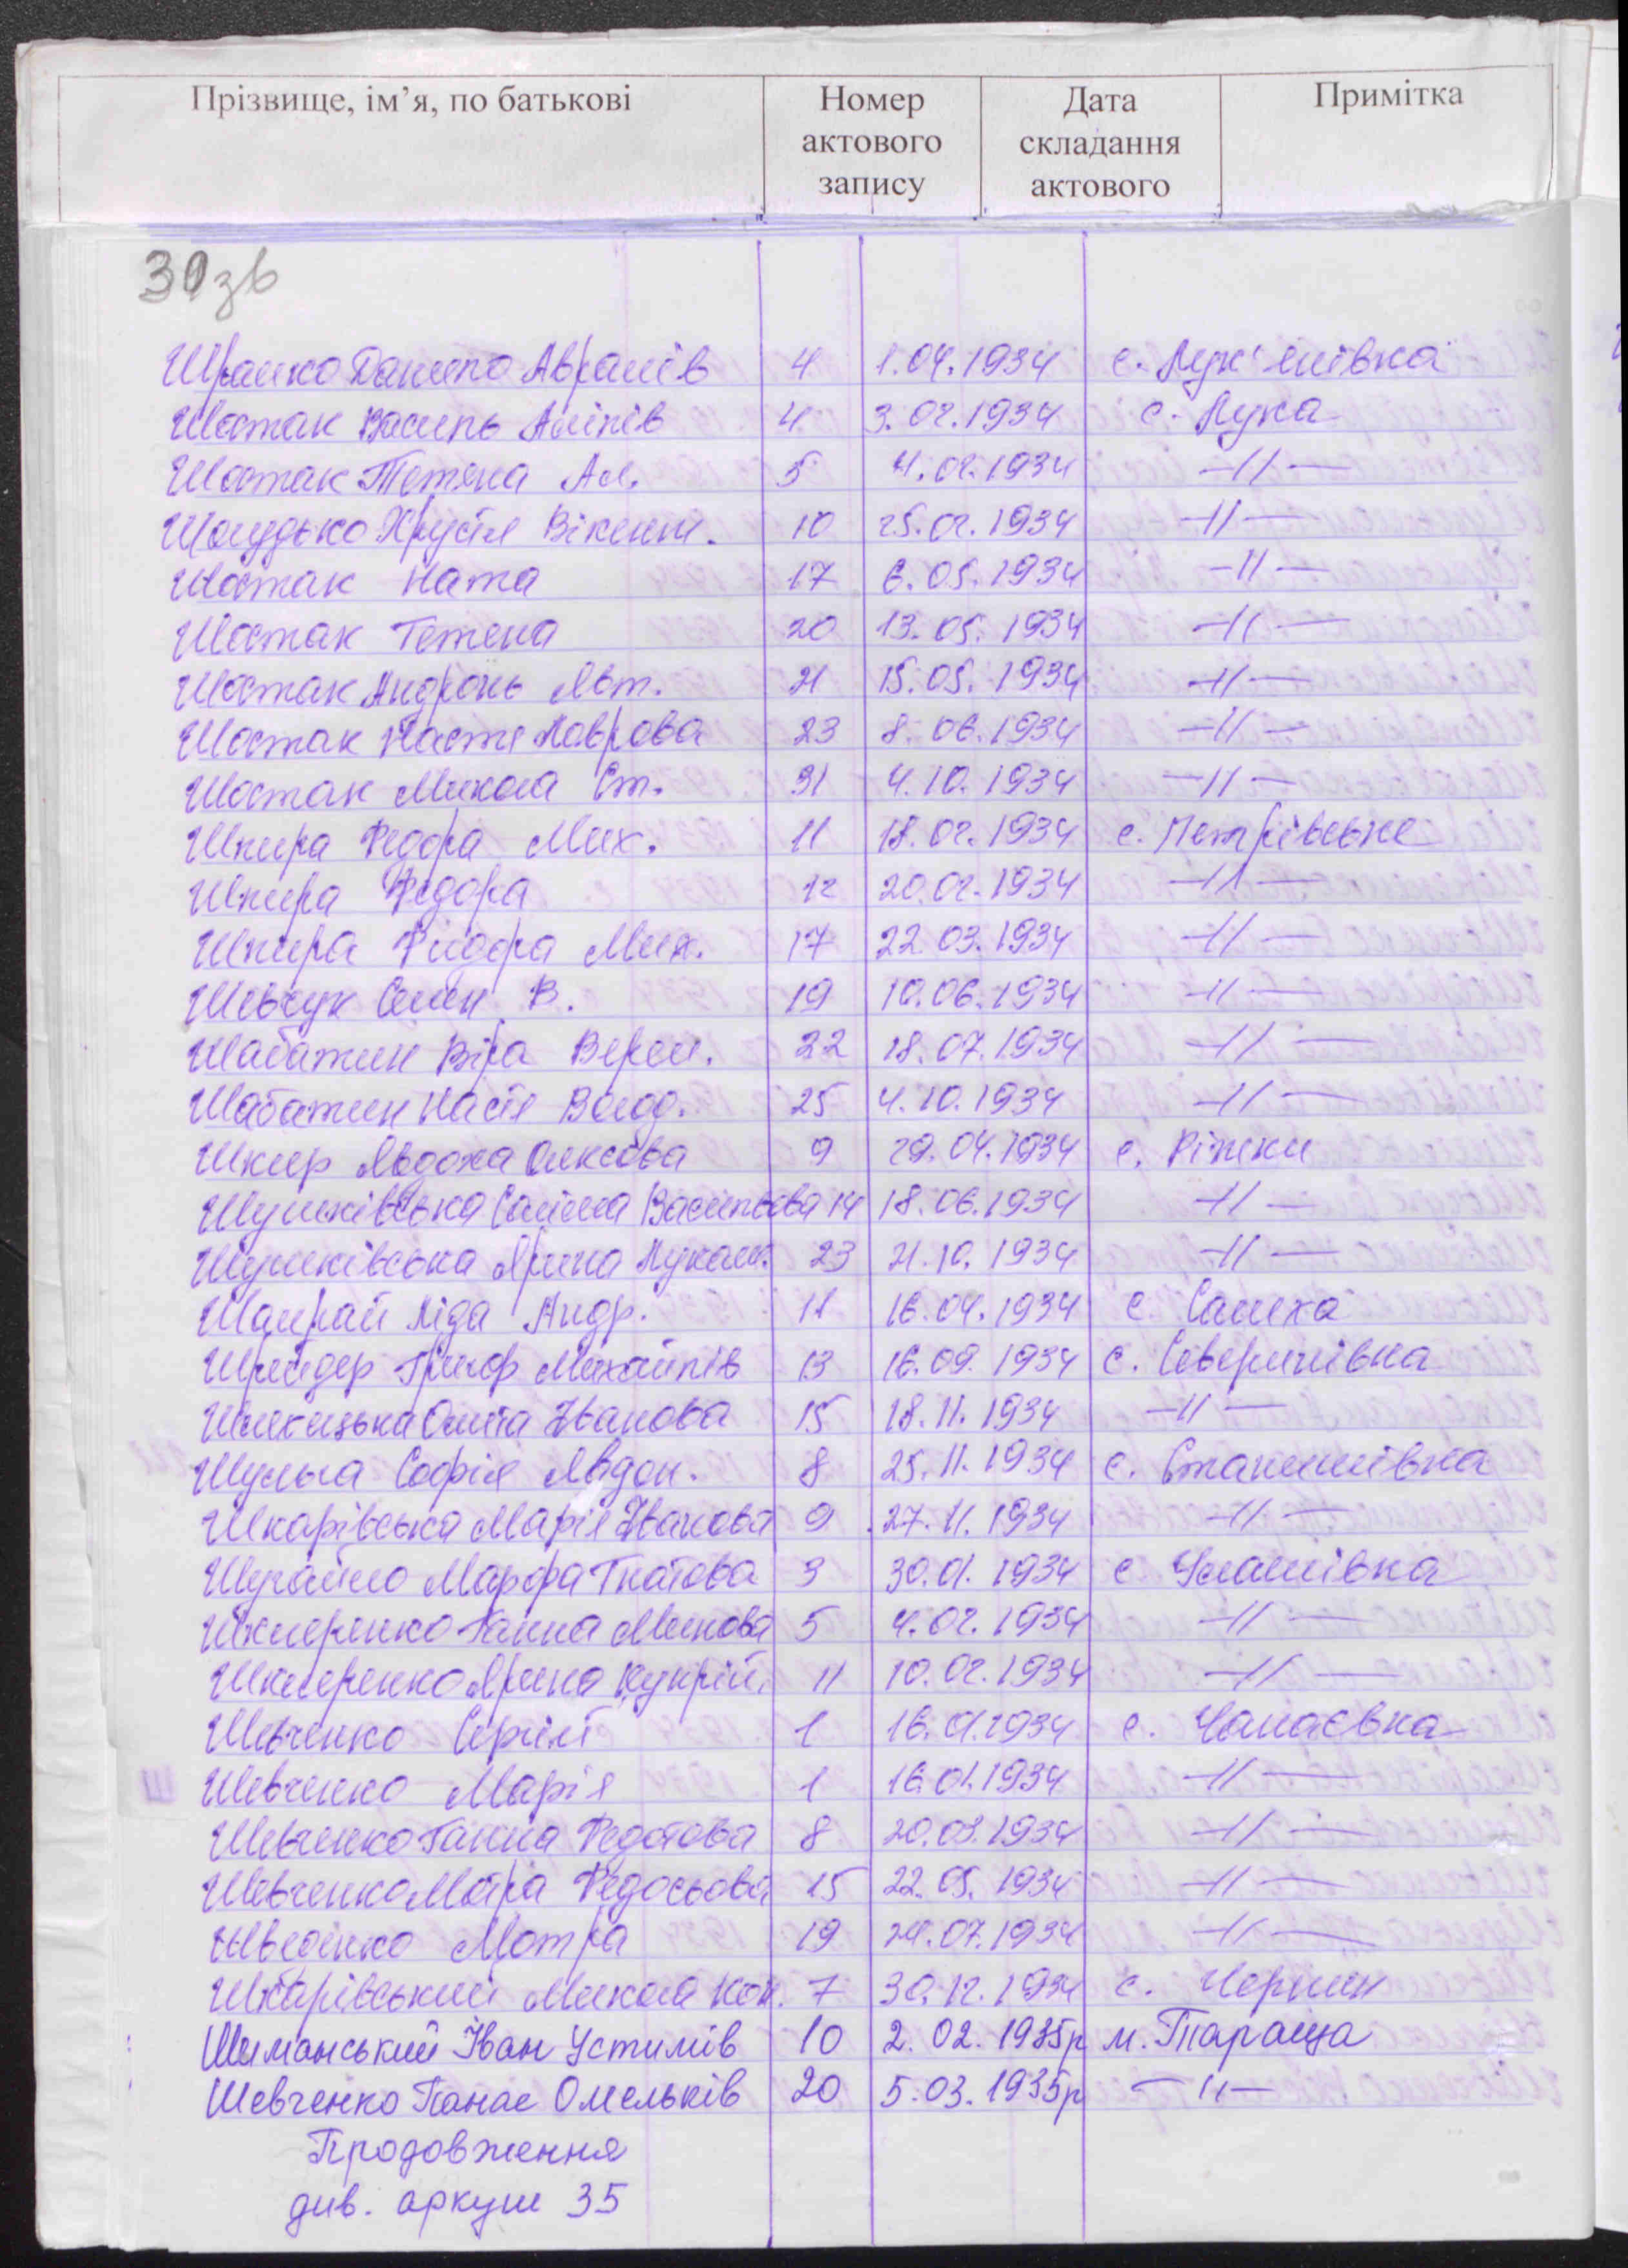 Прізвище, ім’я, по батькові Номер актового запису Дата складання актового Примітка
30зв
Шрамко Данило Аврамів 4 1.04.1934 с. Лук'янівка
Шостак Василь Аміпів 4 3.02.1934 с. Лука
Шостак Тетяна Ал. 5 4.02.1934 -//-
Шолудько Хрустя Вікент. 10 25.02.1934 -//-
Шостак Ната 17 6.05.1934 -//-
Шостак Тетена 20 13.05.1934 -//-
Шостак Андронь Явт. 21 15.05.1934 -//-
Шостак Настя Лаврова 23 8.06.1934 -//-
Шостак Микола Ст. 31 4.10.1934 -//-
Шкира Федора Мих. 11 18.02.1934 с. Петрівське
Шкира Федора 12 20.02.1934 -//-
Шкира Фідора Мих. 17 22.03.1934 -//-
Шевчук Семен В. 19 10.06.1934 -//-
Шабатин Віра Верем. 22 18.07.1934 -//-
Шабатин Настя Волод. 25 4.10.1934 -//-
Шкир Явдоха Олексова 9 29.04.1934 с. Ріжки
Шушківська Саліма Васильова 14 18.06.1934 -//-
Шушківська Ярина Лукаш. 23 21.10.1934 -//-
Шамрай Ліда Андр. 11 16.04.1934 с. Салиха
Шрейдер Григор Михайлів 13 16.09.1934 с. Северинівка
Ольга Іванова 15 18.11.1934 -//-
Шульга Софія Явдок. 8 25.11.1934 с. Станишівка
Шкарівська Марія Іванова 9 27.11.1934 -//-
Шугайло Марфа Гнатова 3 30.01.1934 с Улашівка
Шкмеренко Ганна Минова 5 4.02.1934 -//-
Шкмеренко Ярина Купрій. 11 10.02.1934 -//-
Шевченко Сергій 1 16.01.1934 с. Чапаєвка
Шевченко Марія 1 16.01.1934 -//-
Шевченко Ганна Федотова 8 20.03.1934 -//-
Шевченко Мотря Федосьова 15 22.05.1934 -//-
Шведенко Мотря 19 24.07.1934 -//-
Шкарівський Микола Кон. 7 30.12.1934 с. Чернин
Шиманський Іван Устимів 10 2.02.1935р м. Тараща
Шевченко Панас Омельків 20 5.03.1935р -//-
Продовження
див. аркуш 35